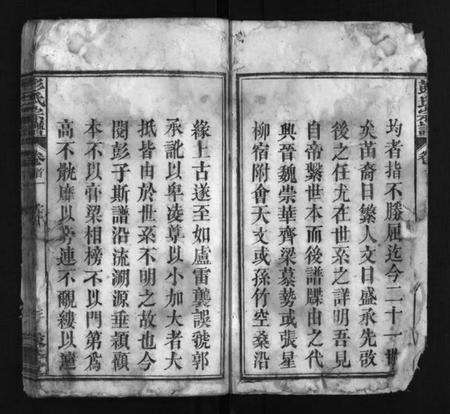 彭氏宗譜
卷首
均者指不勝屈迄今二十一世
矣苗裔日繁人文日盛承先啟
後之任尤在世系之詳明吾見
自帝繫世本而後譜牒由之代
興晉魏崇華齊梁慕勢或張星
柳宿附會天文或孫竹空桑沿
緣上古遂至如盧雷襲誤虢郭
承訛以卑凌尊以小加大者大
抵皆由於世系不明之故也今
閱彭子斯譜沿流溯源垂穎顧
本不以膏粱相榜不以門第為
高不骫靡以旁連不覼縷以遠
彭氏宗譜
卷首